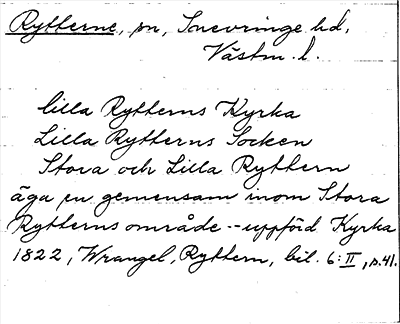 Rytterne, sn, Snevringe hd.
Västm. l.
lilla Rytterns Kyrka
Lilla Rytterns Socken
Stora och Lilla Ryttern
äga en gemensam inom Stora
Rytterns område -- uppförd Kyrka
1822, Wrangel, Ryttern, bil. 6: II, p. 41.